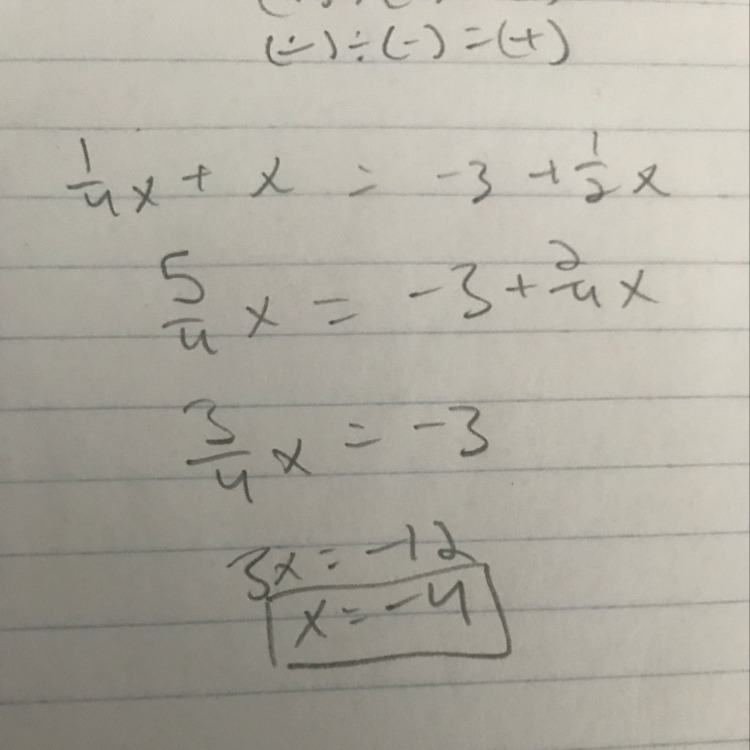 (-)÷(-)=(+)
1/4x + x = -3 + 1/2x
5/4x = -3 + 2/4x
3/4x = -3
3x = -12
x = -4